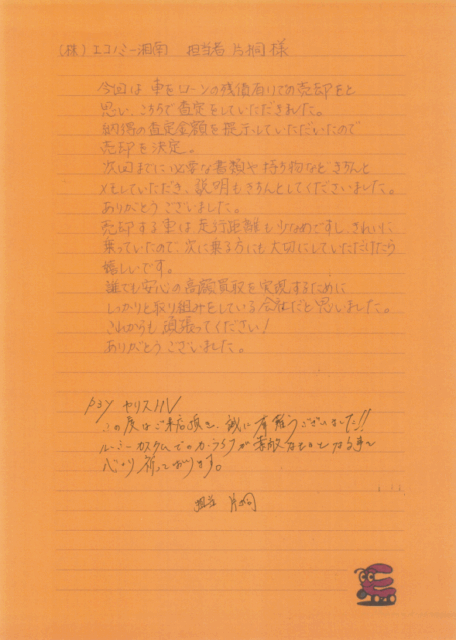 (株)エコノミー湘南　担当者 片桐 様
今回は、車をローンの残債有りでの売却をと
思い、こちらで査定をしていただきました。
納得の査定金額を提示していただいたので
売却を決定。
次回までに必要な書類や持ち物などきちんと
メモしていただき、説明もきちんとしてくださいました。
ありがとうございました。
売却する車は走行距離も少なめですし、きれいに
乗っていたので、次に乗る方にも大切にしていただけたら
嬉しいです。
誰でも安心の高額買取を実現するために
しっかりと取り組みをしている会社だと思いました。
これからも頑張ってください!
ありがとうございました。
ヤリスHV
この度はご来店頂き、誠に有難うございました!!
ルーミーカスタムでのカーライフが素敵なものとなる事を
心より祈っております。
担当 片桐